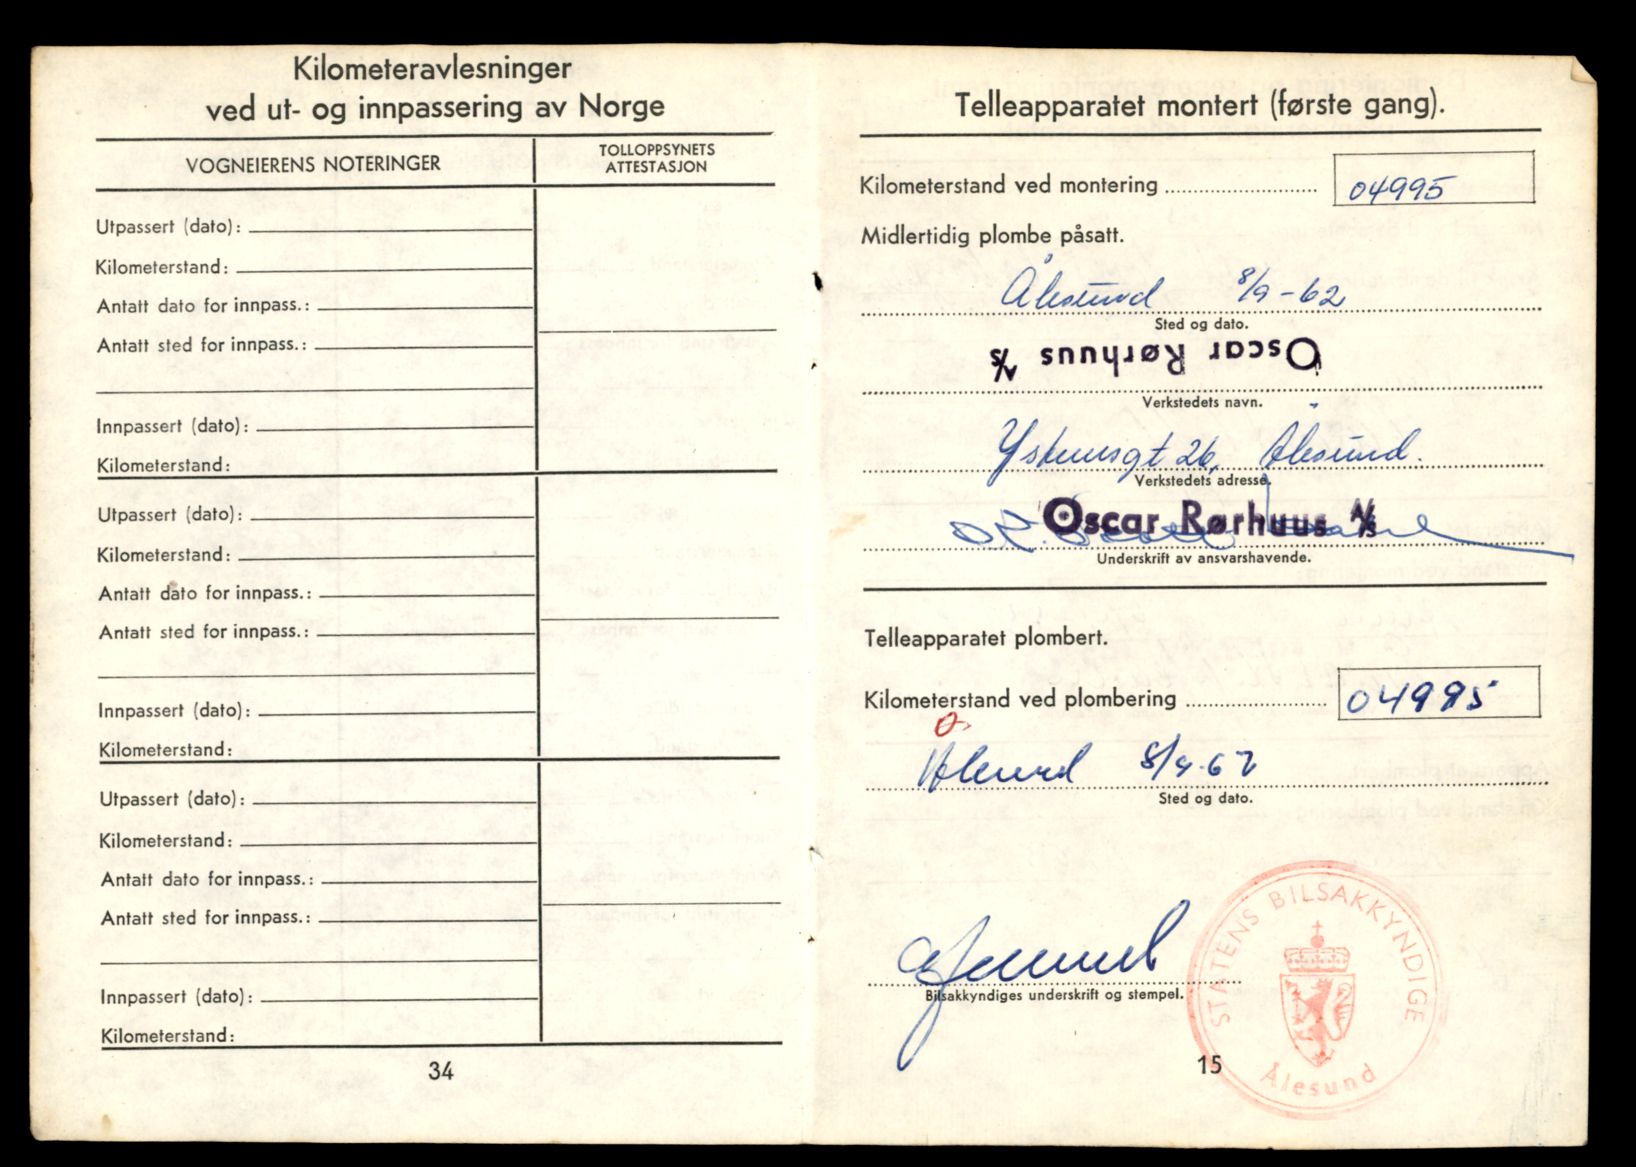 Kilometeravlesninger
ved ut- og innpassering av Norge
VOGNEIERENS NOTERINGER
TOLLOPPSYNETS
ATTESTASJON
Utpassert (dato):
Kilometerstand:
Antatt dato for innpass.:
Antatt sted for innpass.:
Innpassert (dato):
Kilometerstand:
Utpassert (dato):
Kilometerstand:
Antatt dato for innpass.:
Antatt sted for innpass.:
Innpassert (dato):
Kilometerstand:
Utpassert (dato):
Kilometerstand:
Antatt dato for innpass.:
Antatt sted for innpass.:
Innpassert (dato):
Kilometerstand:
34
Telleapparatet montert (første gang).
Kilometerstand ved montering 04995
Midlertidig plombe påsatt.
Ålesund 8/9-62
Sted og dato.
Oscar Rørhuus A/S
Verkstedets navn.
26, Ålesund.
Verkstedets adresse.
Oscar Rørhuus A/S
Underskrift av ansvarshavende.
Telleapparatet plombert.
Kilometerstand ved plombering 04995
Ålesund 8/9-62
Sted og dato.
Bilsakkyndiges underskrift og stempel.
STATENS BILSAKKYNDIGE
Ålesund
15